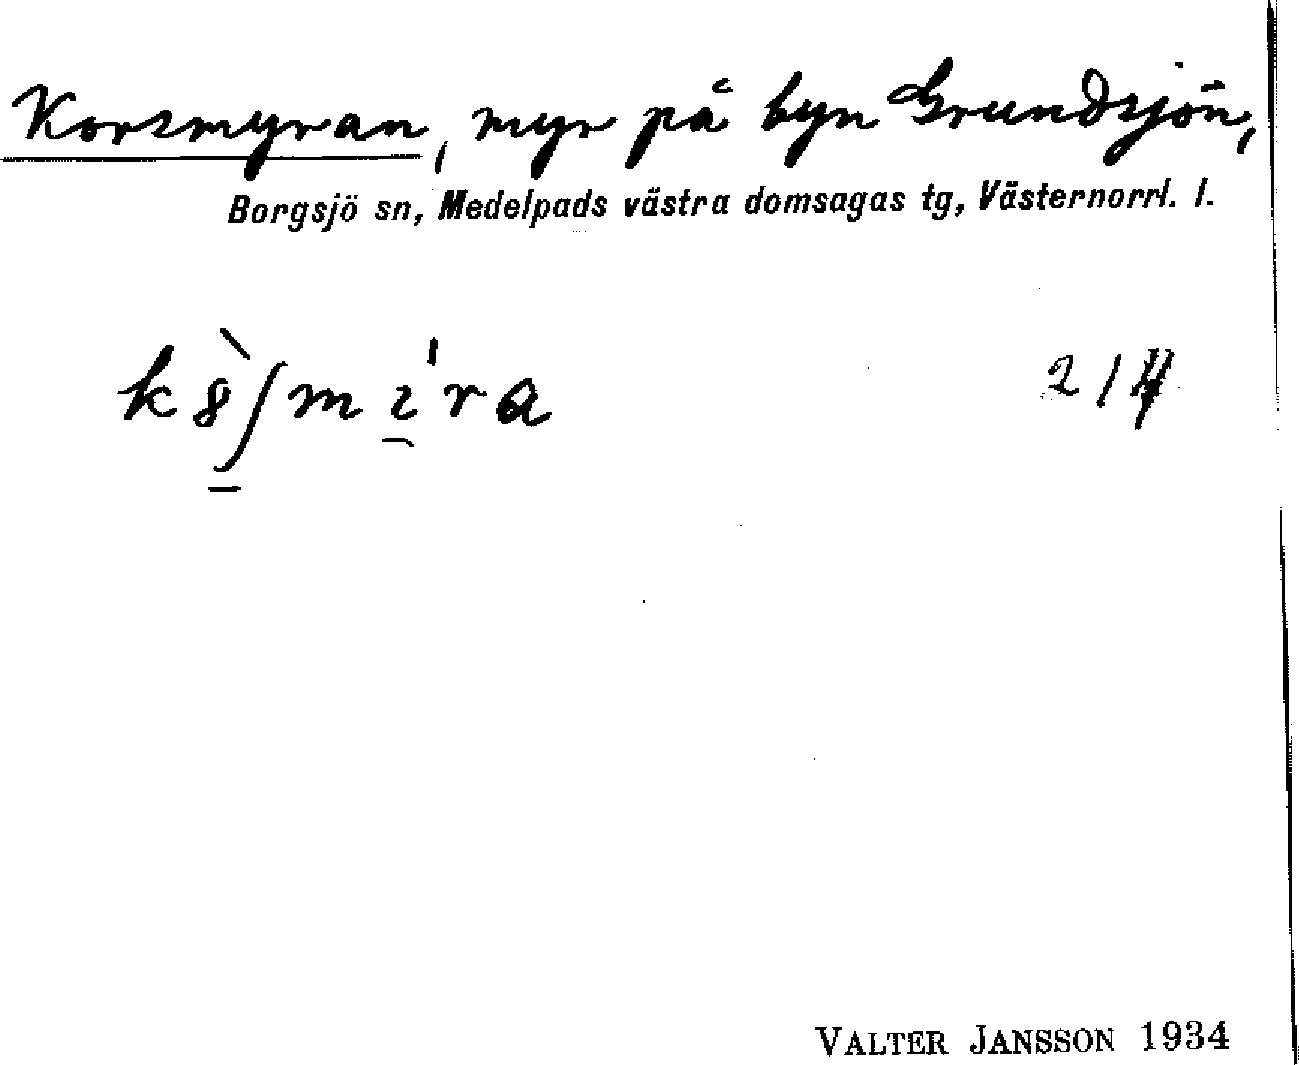 Korsmyran, myr på byn Grundsjön,
Borgsjö sn, Medelpads västra domsagas tg, Västernorrl. l.
VALTER JANSSON 1934